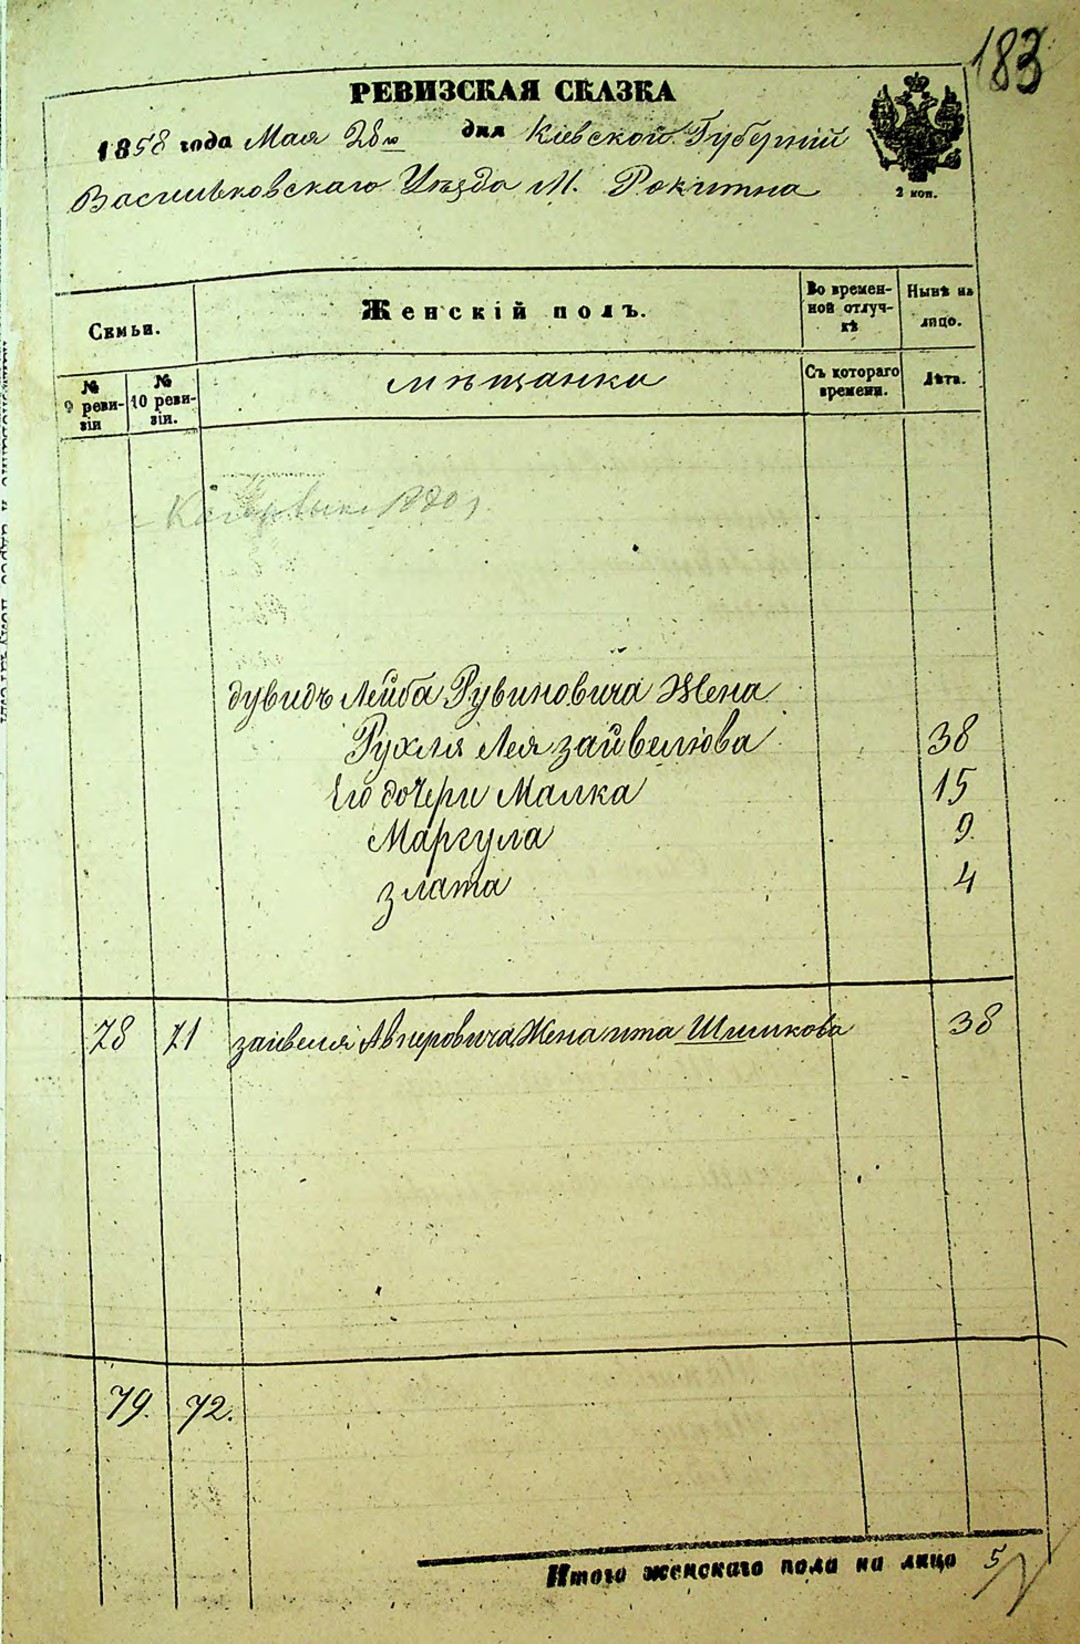 183
РЕВИЗСКАЯ СКАЗКА
1858 года Мая 28го дня Кіевской Губерніи
Васильковскаго Уѣзда М. Рокитна
2 коп.
Семьи.
Женскій полъ.
Во времен-
ной отлуч-
кѣ
Нынѣ на
лицо.
№
9 реви-
зіи
№
10 реви-
зіи.
мѣщанки
Съ котораго
времени.
Лѣта.
Дувидъ Лейба Рувиновича Жена
Рухля Лея Зайвелюва 38
Его дочери Малка 15
Маргула 9.
Злата 4
78 71 Зайвеля Авперовича Жена Ита Шлимкова 38
79. 72.
Итого женскаго пола на лицо 5